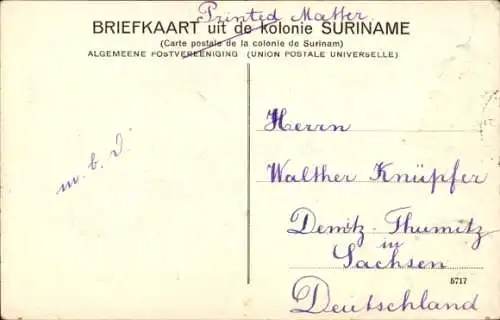 Printed Matter
BRIEFKAART uit de kolonie SURINAME
(Carte postale de la colonie de Surinam)
ALGEMEENE POSTVEREENIGING (UNION POSTALE UNIVERSELLE)
m. b. d.
Herrn
Walther Knüpfer
Demitz-Thumitz
in
Sachsen
5717
Deutschland